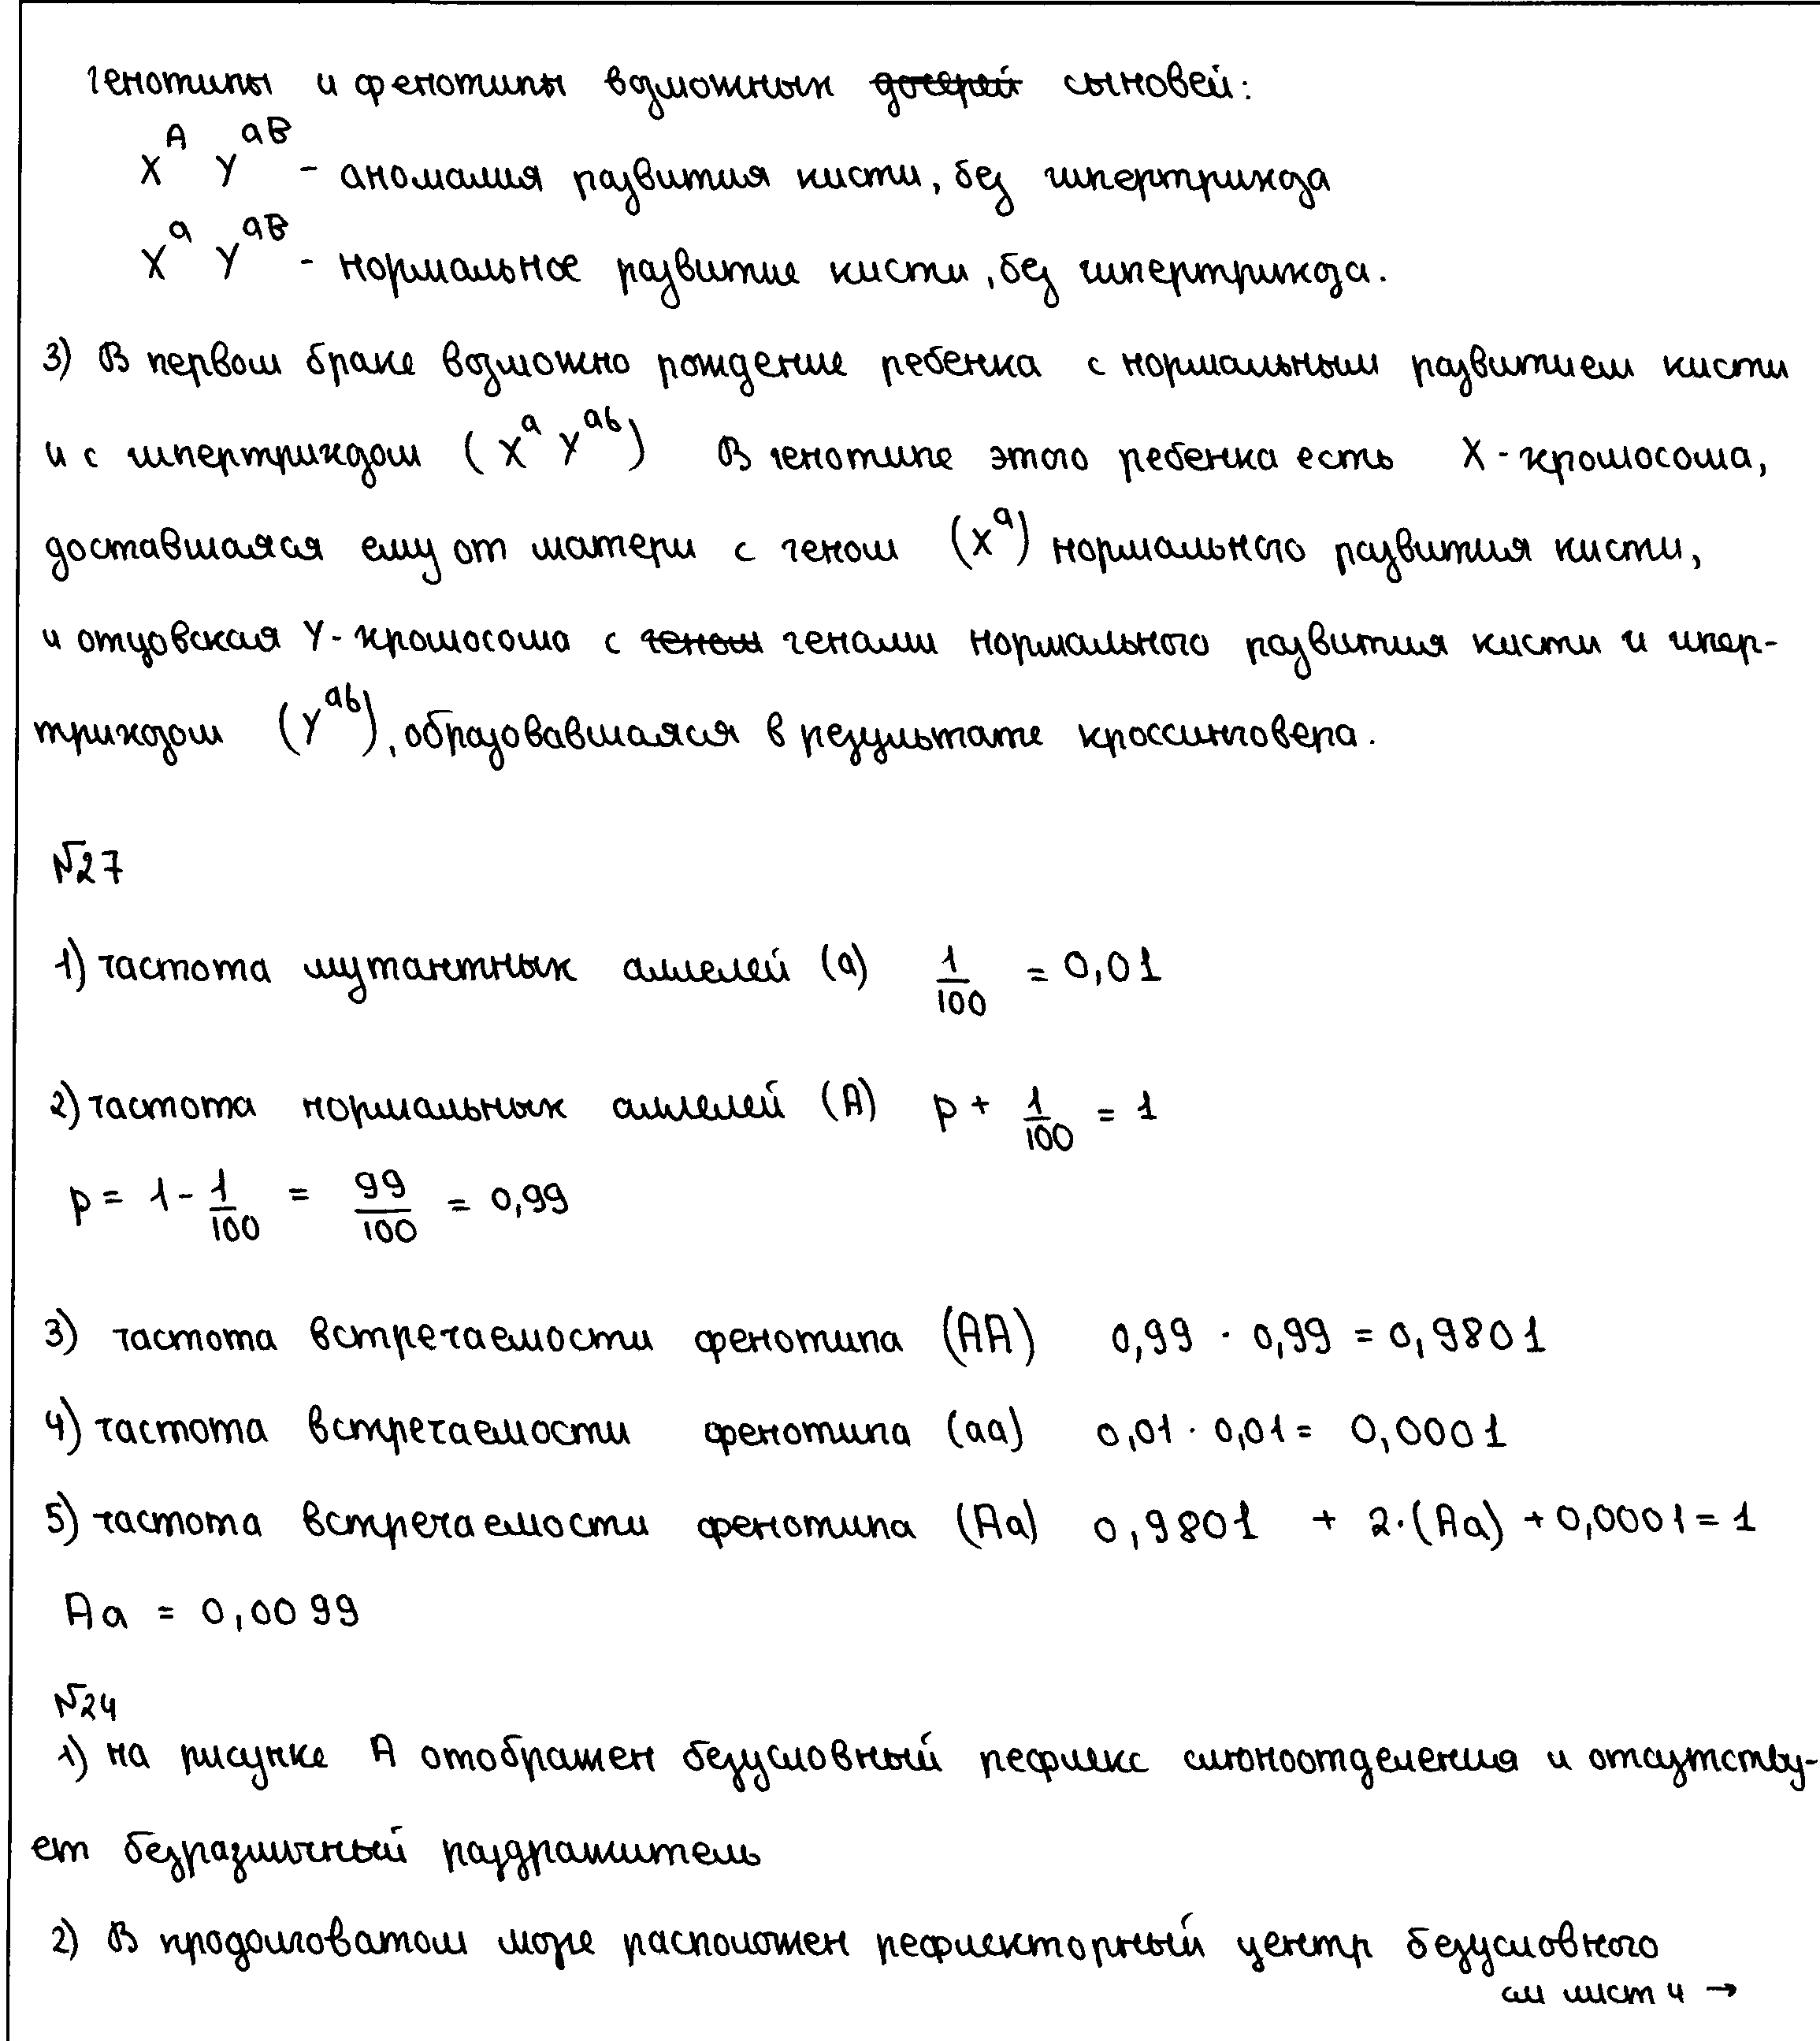 генотипы и фенотипы возможных дочерей сыновей:
X^A Y^aB - аномалия развития кисти, без гипертрихоза
X^a Y^aB - нормальное развитие кисти, без гипертрихоза.
3) В первом браке возможно рождение ребенка с нормальным развитием кисти
и с гипертрихозом (X^a Y^ab) В генотипе этого ребенка есть X-хромосома,
доставшаяся ему от матери с геном (X^a) нормального развития кисти,
и отцовская Y-хромосома с геном генами нормального развития кисти и гипер-
трихозом (Y^ab), образовавшаяся в результате кроссинговера.
№27
1) частота мутантных аллелей (a) 1/100 = 0,01
2) частота нормальных аллелей (A) p + 1/100 = 1
p = 1 - 1/100 = 99/100 = 0,99
3) частота встречаемости фенотипа (AA) 0,99 · 0,99 = 0,9801
4) частота встречаемости фенотипа (aa) 0,01 · 0,01 = 0,0001
5) частота встречаемости фенотипа (Aa) 0,9801 + 2·(Aa) + 0,0001 = 1
Aa = 0,0099
№24
1) на рисунке А отображен безусловный рефлекс слюноотделения и отсутству-
ет безразличный раздражитель
2) В продолговатом мозге расположен рефлекторный центр безусловного
см лист 4 →